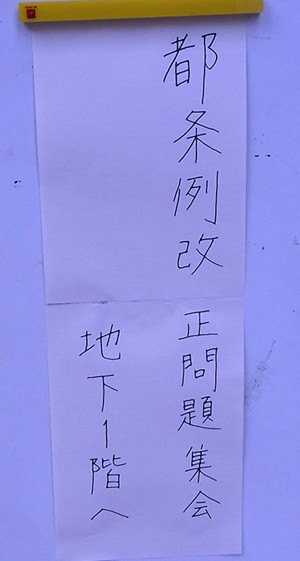 都条例改正問題集会
地下1階へ